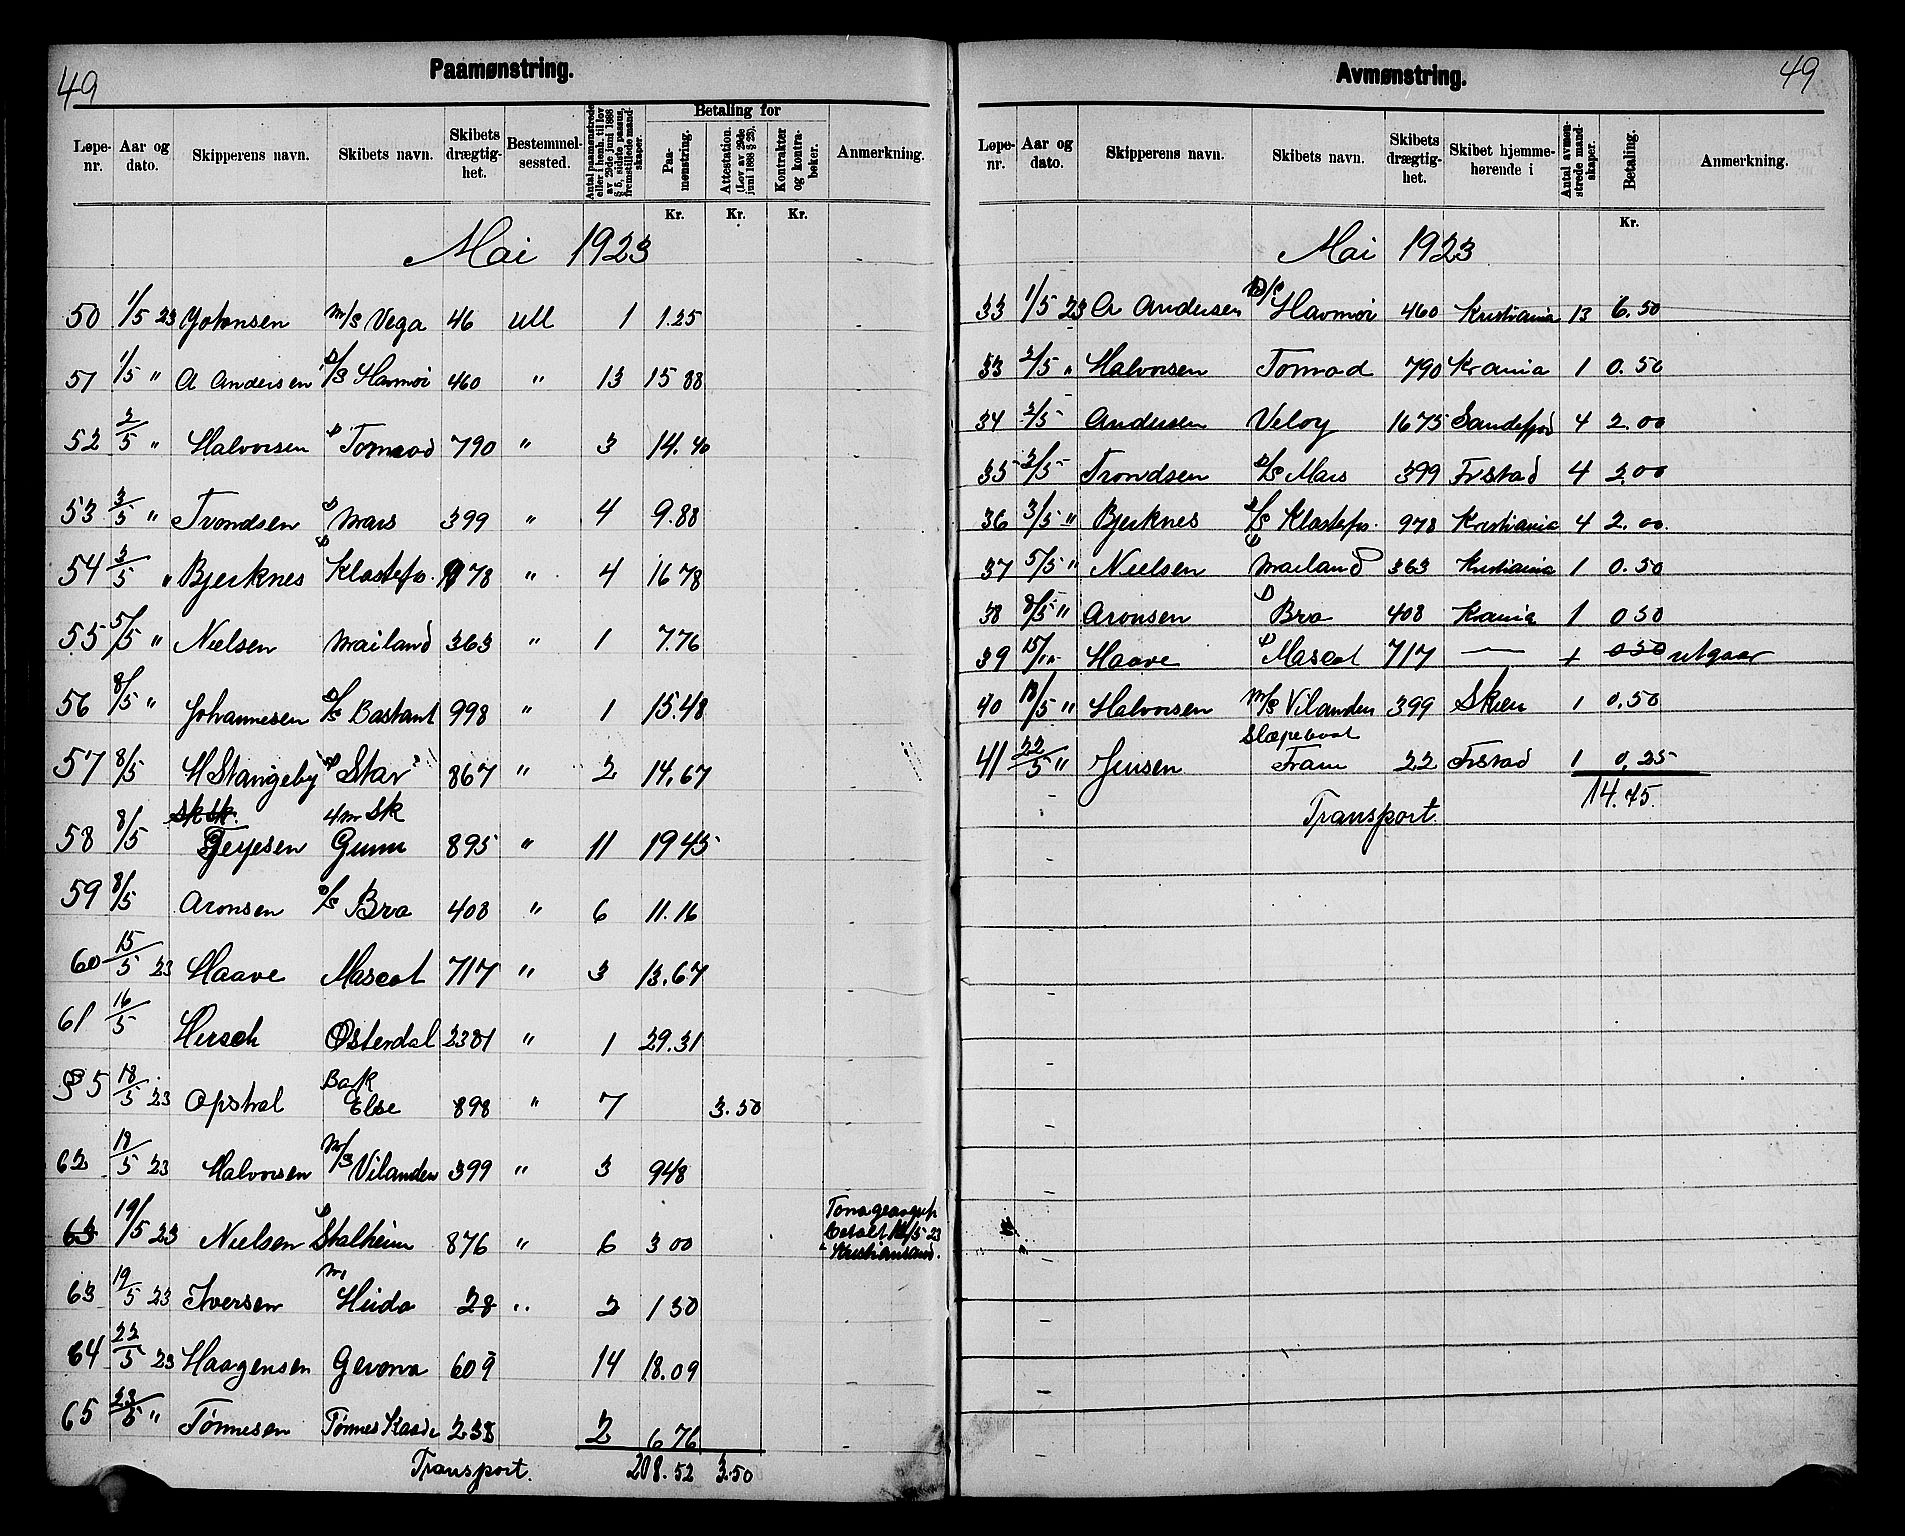 49
Paamønstring.
Løpe-nr. Aar og dato. Skipperens navn. Skibets navn. Skibets drægtig-het. Bestemmel-sessted. Antal paamønstrede eller i henh. til lov av 29de juni 1888 § 5, sidste passus, fremstillede mand-skaper. Betaling for Paa-mønstring. Attestation. (Lov av 29de juni 1888 § 25). Kontrakter og kontra-bøker. Anmerkning.
Kr. Kr. Kr.
Mai 1923
50 1/5 23 Johnsen M/S Vega 46 Utl 1 1.25
51 1/5 " A Andersen D/S Havmøi 460 " 13 15 88
52 2/5 " Halvorsen D Tormod 790 " 3 14.40
53 3/5 " Trondsen D Mars 399 " 4 9.88
54 3/5 " Bjerknes D Klostefos. 978 " 4 16 78
55 5/5 " Nielsen Mailand 363 " 1 7.76
56 8/5 " Johannesen D/S Bastant 998 " 1 15.48
57 8/5 H Stangeby D Stav 867 " 2 14.67
Sk Sk. 4m Sk
58 8/5 Gunn 895 " 11 19 45
59 8/5 Aronsen D/S Bra 408 " 6 11.16
60 15/5 23 Haave Mascot 717 " 3 13.67
61 16/5 Hersch Østerdal 2381 " 1 29.31
Bark
5 18/5 23 Opstal Else 898 " 7 3.50
62 18/5 23 Halvorsen M/S Vilanden 399 " 3 9 48
63 19/5 23 Nielsen D Stalheim 876 " 6 3 00
betalt 12/5-23
Kristiansand.
63 19/5 23 Iversen M/ Heida 28 " 2 1 50
64 22/5 23 Haagensen Gerona 609 14 18.09
65 23/5 " Tønnesen Tønnes 238 2 6 76
Transport. 208.52 3.50
49
Avmønstring.
Løpe-nr. Aar og dato. Skipperens navn. Skibets navn. Skibets drægtig-het. Skibet hjemme-hørende i Antal avmøn-strede mand-skaper. Betaling. Anmerkning.
Kr.
Mai 1923
33 1/5 23 A Andersen D/S Havmøi 460 Kristiania 13 6.50
33 2/5 " Halvorsen Tormod 790 Krania 1 0.50
34 2/5 Andersen Veloy 1675 Sandefjord 4 2.00
35 2/5 Trondsen D/S Mars 399 Frstad 4 2.00
36 3/5 " Bjerknes D/S Klostefos. 978 Kristiania 4 2.00.
37 5/5 " Nielsen D Mailand 363 Kristiania 1 0.50
38 8/5 " Aronsen D Bra 408 Krania 1 0 50
39 15/ Haave D Mascot 717 — 0 50 utgaar
40 18/5 " Halvorsen M/S Vilanden 399 Skien 1 0.50
Slæpebaat
41 22/5 " Jensen Fram 22 Frstad 1 0,25
14.75.
Transport.